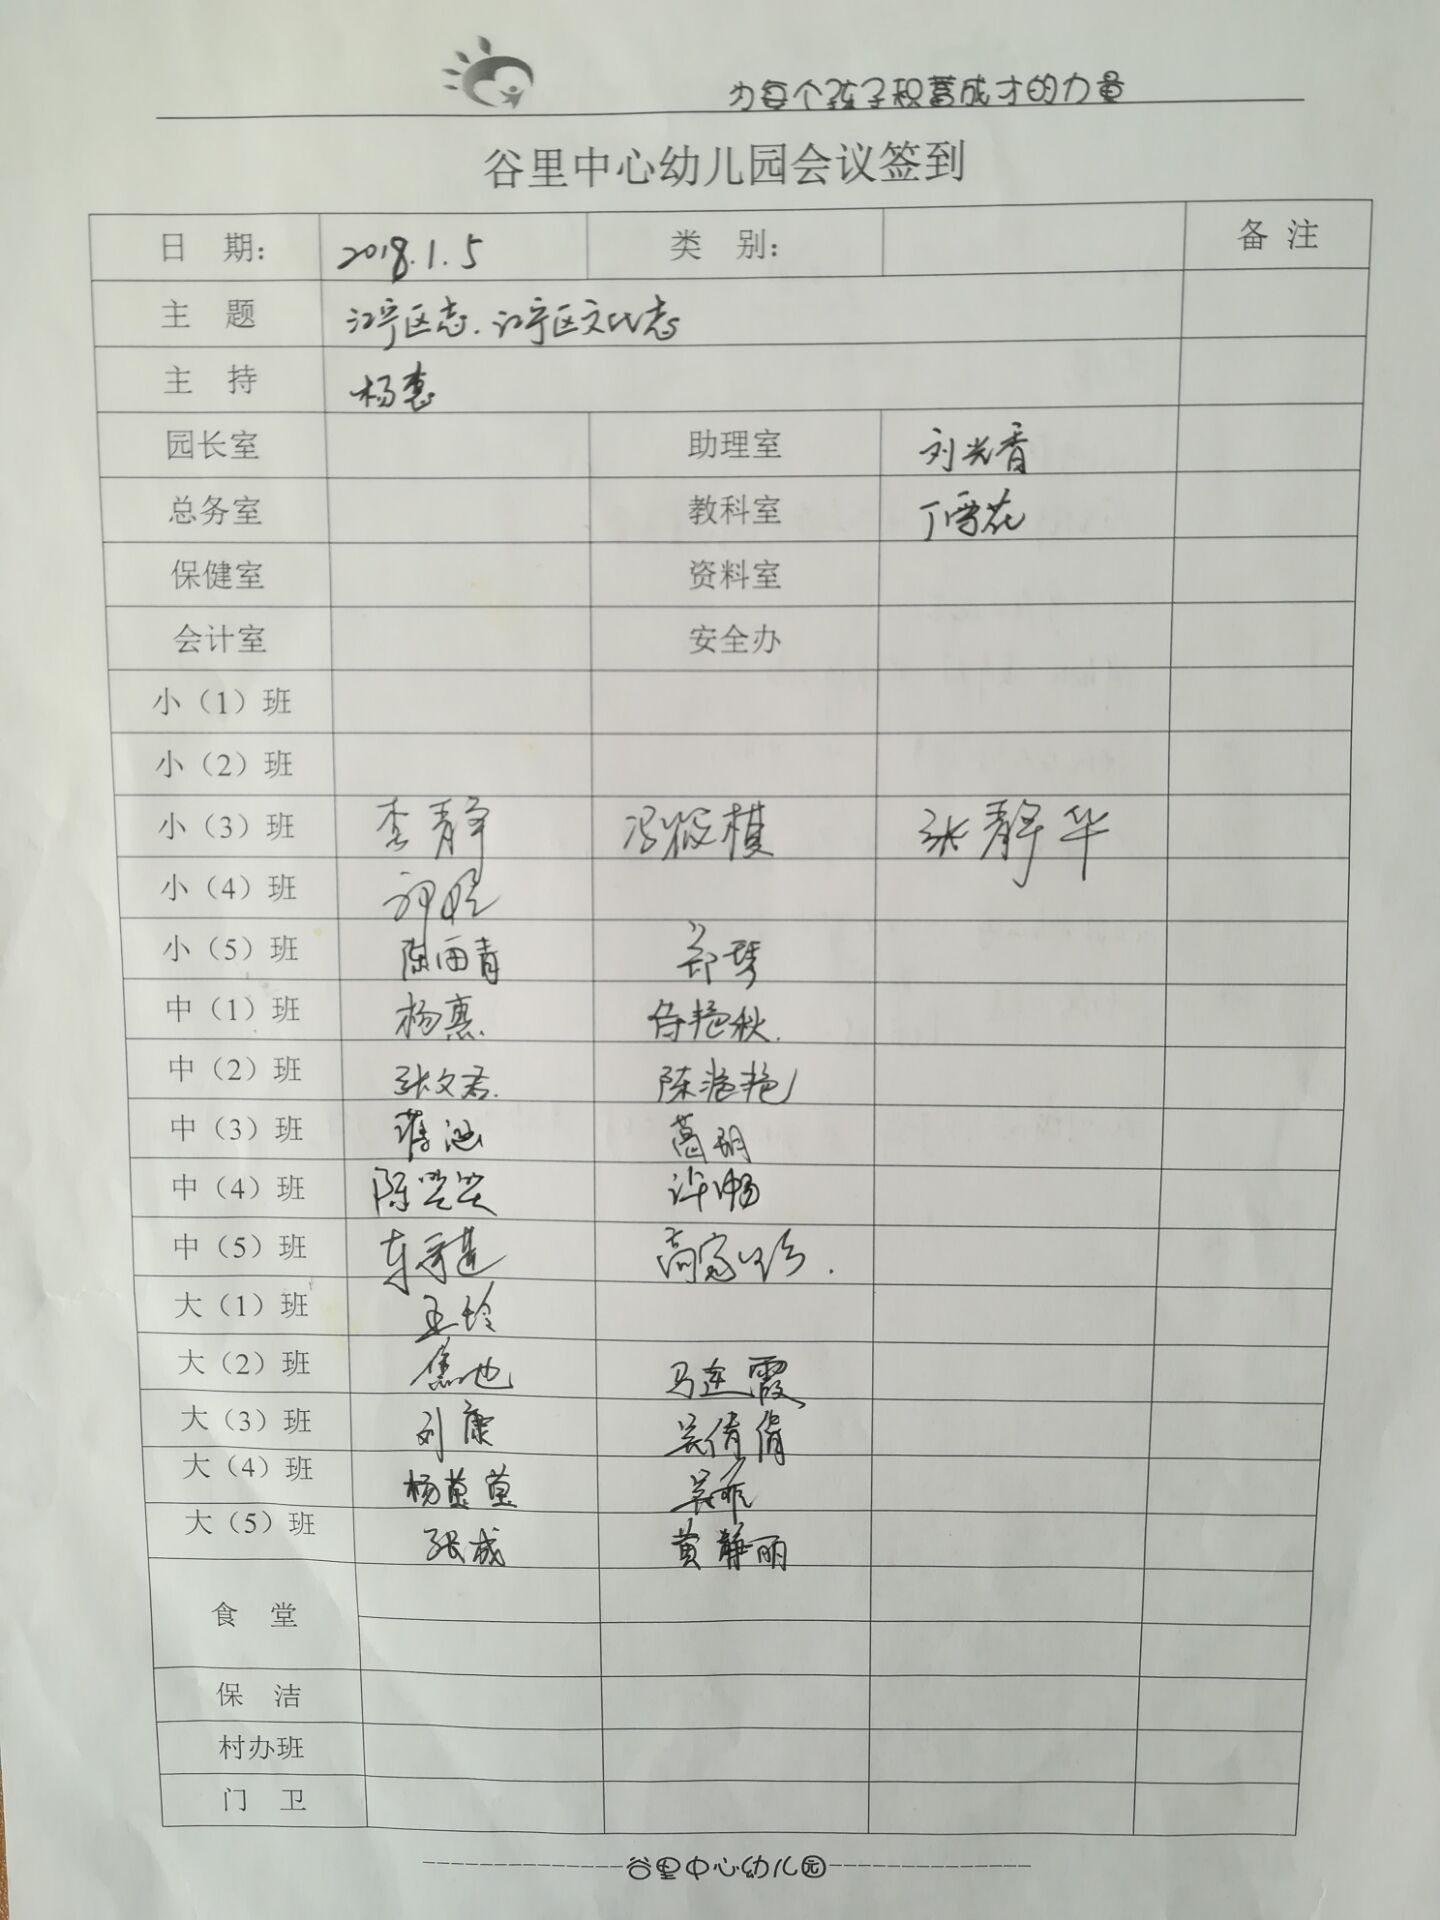 为每个孩子积蓄成才的力量
谷里中心幼儿园会议签到
日 期： 2018.1.5 类 别： 备 注
主 题 江宁区志、江宁区文化志
主 持 杨惠
园长室 助理室 刘光香
总务室 教科室 丁雪花
保健室 资料室
会计室 安全办
小（1）班
小（2）班
小（3）班 李静 张静华
小（4）班
小（5）班 陈雨青 郑琴
中（1）班 杨惠 侍艳秋
中（2）班 张文君 陈艳艳
中（3）班 蒋涵 葛玥
中（4）班 陈笑笑 许畅
中（5）班
大（1）班 王玲
大（2）班 焦也 马连霞
大（3）班 刘康 吴倩倩
大（4）班
大（5）班 张成 黄静丽
食 堂
保 洁
村办班
门 卫
谷里中心幼儿园